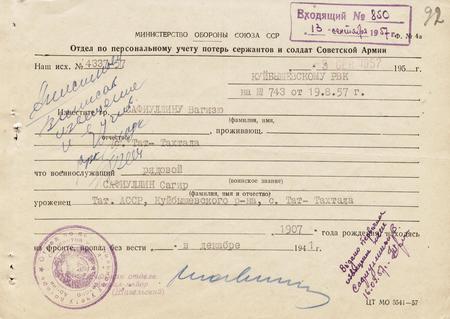 Входящий № 850
13 сентября 1957г
92
МИНИСТЕРСТВО ОБОРОНЫ СОЮЗА ССР
Ф. № 4а
Отдел по персональному учету потерь сержантов и солдат Советской Армии
Наш исх. № 4337 57
1957
195 г.
КУЙБЫШЕВСКОМУ РВК
на № 743 от 19.8.57 г.
Известите гр. САФИУЛЛИНУ Вагизю
(фамилия, имя,
отчество)
проживающ.
Тат- Тахтала
что военнослужащий рядовой
(воинское звание)
САФИУЛЛИН Сагир
(фамилия, имя и отчество)
уроженец Тат. АССР, Куйбышевского р-на, с. Тат- Тахтала
1907 года рождения, находясь
на фронте, пропал без вести - в декабре 1941 г.
отделе
майор
(Шавельский)
Выдано
извещение
ЦТ МО 5541—57